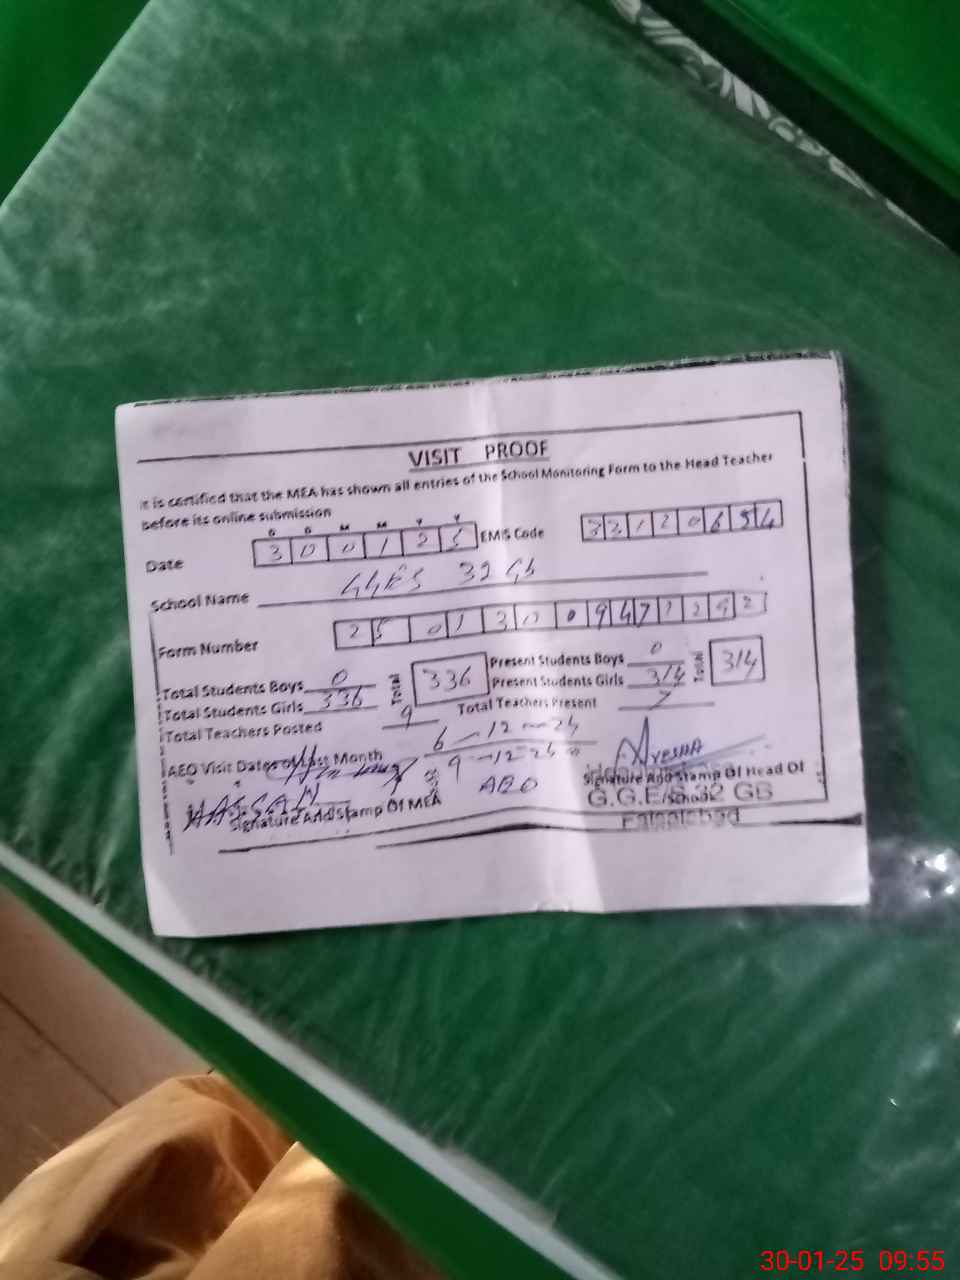 VISIT PROOF
It is certified that the MEA has shown all entries of the School Monitoring Form to the Head Teacher
before its online submission
D D M M Y Y
Date 3 0 0 1 2 5 EMIS Code 3 3 1 2 0 6 5 4
School Name GGES 32 GB
Form Number 2 5 0 1 3 0 0 9 4 7 1 2 9 2
Total Students Boys 0 Total 336 Present Students Boys 0 Total 314
Total Students Girls 336 Present Students Girls 314
Total Teachers Posted 9 Total Teachers Present 7
AEO Visit Dates of Last Month 6-12-24
9-12-24
AEO
HASSAN
Ayesha
Signature And Stamp Of MEA
Signature And Stamp Of Head Of
School
G.G.E/S 32 GB
Faisalabad
30-01-25 09:55